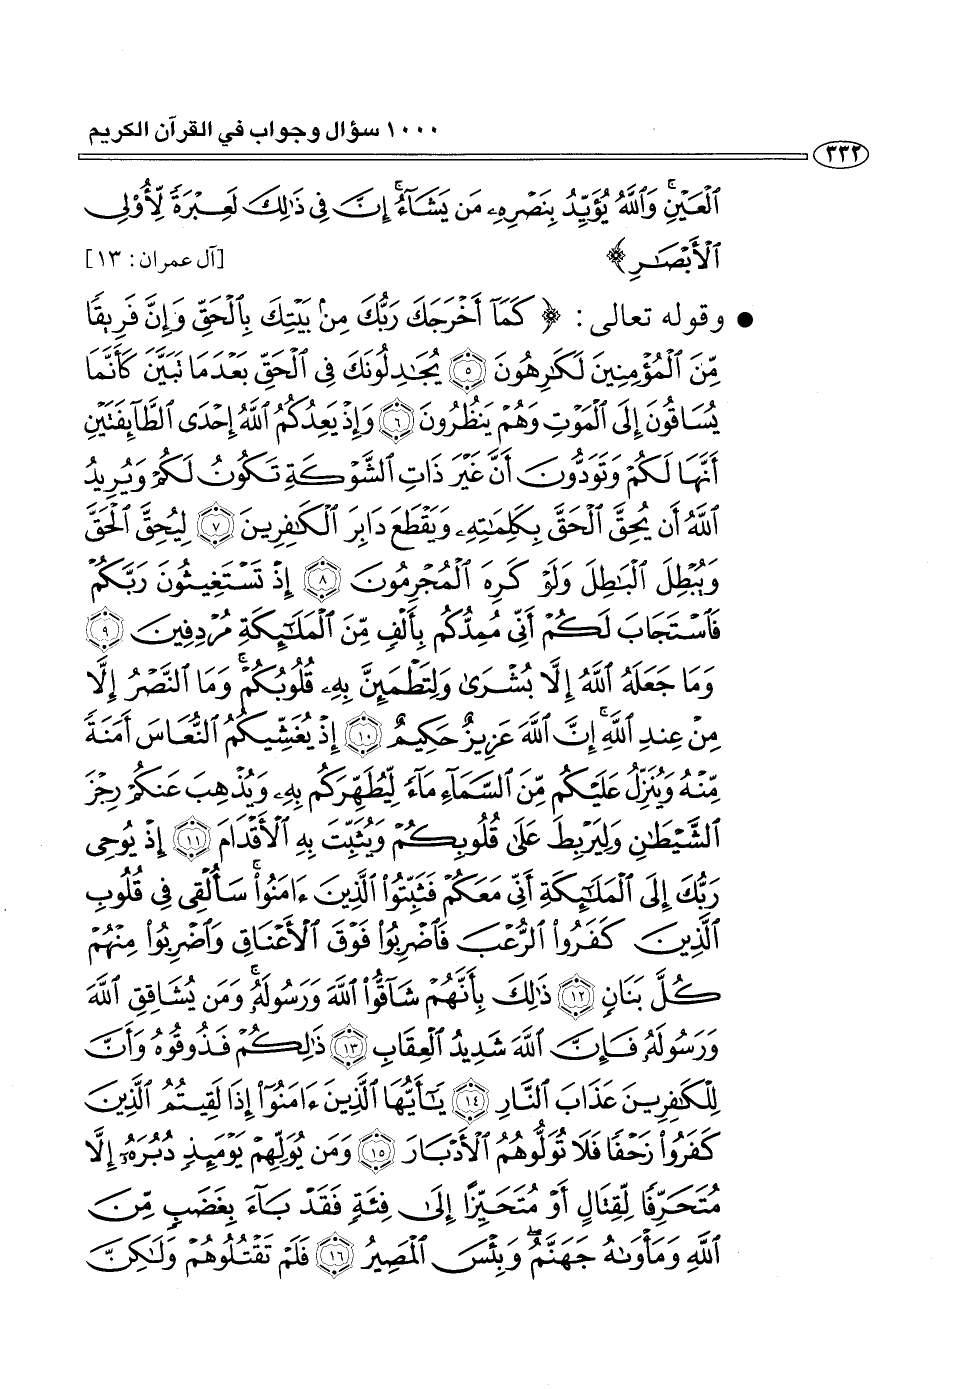 ١٠٠٠ سؤال وجواب في القرآن الكريم
٣٣٢
ٱلْعَيْنِ ۚ وَٱللَّهُ يُؤَيِّدُ بِنَصْرِهِۦ مَن يَشَآءُ ۗ إِنَّ فِى ذَٰلِكَ لَعِبْرَةً لِّأُو۟لِى
ٱلْأَبْصَٰرِ ﴾ [آل عمران: ١٣]
● وقوله تعالى: ﴿ كَمَآ أَخْرَجَكَ رَبُّكَ مِنۢ بَيْتِكَ بِٱلْحَقِّ وَإِنَّ فَرِيقًا
مِّنَ ٱلْمُؤْمِنِينَ لَكَٰرِهُونَ ٥ يُجَٰدِلُونَكَ فِى ٱلْحَقِّ بَعْدَمَا تَبَيَّنَ كَأَنَّمَا
يُسَاقُونَ إِلَى ٱلْمَوْتِ وَهُمْ يَنظُرُونَ ٦ وَإِذْ يَعِدُكُمُ ٱللَّهُ إِحْدَى ٱلطَّآئِفَتَيْنِ
أَنَّهَا لَكُمْ وَتَوَدُّونَ أَنَّ غَيْرَ ذَاتِ ٱلشَّوْكَةِ تَكُونُ لَكُمْ وَيُرِيدُ
ٱللَّهُ أَن يُحِقَّ ٱلْحَقَّ بِكَلِمَٰتِهِۦ وَيَقْطَعَ دَابِرَ ٱلْكَٰفِرِينَ ٧ لِيُحِقَّ ٱلْحَقَّ
وَيُبْطِلَ ٱلْبَٰطِلَ وَلَوْ كَرِهَ ٱلْمُجْرِمُونَ ٨ إِذْ تَسْتَغِيثُونَ رَبَّكُمْ
فَٱسْتَجَابَ لَكُمْ أَنِّى مُمِدُّكُم بِأَلْفٍ مِّنَ ٱلْمَلَٰٓئِكَةِ مُرْدِفِينَ ٩
وَمَا جَعَلَهُ ٱللَّهُ إِلَّا بُشْرَىٰ وَلِتَطْمَئِنَّ بِهِۦ قُلُوبُكُمْ ۚ وَمَا ٱلنَّصْرُ إِلَّا
مِنْ عِندِ ٱللَّهِ ۚ إِنَّ ٱللَّهَ عَزِيزٌ حَكِيمٌ ١٠ إِذْ يُغَشِّيكُمُ ٱلنُّعَاسَ أَمَنَةً
مِّنْهُ وَيُنَزِّلُ عَلَيْكُم مِّنَ ٱلسَّمَآءِ مَآءً لِّيُطَهِّرَكُم بِهِۦ وَيُذْهِبَ عَنكُمْ رِجْزَ
ٱلشَّيْطَٰنِ وَلِيَرْبِطَ عَلَىٰ قُلُوبِكُمْ وَيُثَبِّتَ بِهِ ٱلْأَقْدَامَ ١١ إِذْ يُوحِى
رَبُّكَ إِلَى ٱلْمَلَٰٓئِكَةِ أَنِّى مَعَكُمْ فَثَبِّتُوا۟ ٱلَّذِينَ ءَامَنُوا۟ ۚ سَأُلْقِى فِى قُلُوبِ
ٱلَّذِينَ كَفَرُوا۟ ٱلرُّعْبَ فَٱضْرِبُوا۟ فَوْقَ ٱلْأَعْنَاقِ وَٱضْرِبُوا۟ مِنْهُمْ
كُلَّ بَنَانٍ ١٢ ذَٰلِكَ بِأَنَّهُمْ شَآقُّوا۟ ٱللَّهَ وَرَسُولَهُۥ ۚ وَمَن يُشَاقِقِ ٱللَّهَ
وَرَسُولَهُۥ فَإِنَّ ٱللَّهَ شَدِيدُ ٱلْعِقَابِ ١٣ ذَٰلِكُمْ فَذُوقُوهُ وَأَنَّ
لِلْكَٰفِرِينَ عَذَابَ ٱلنَّارِ ١٤ يَٰٓأَيُّهَا ٱلَّذِينَ ءَامَنُوٓا۟ إِذَا لَقِيتُمُ ٱلَّذِينَ
كَفَرُوا۟ زَحْفًا فَلَا تُوَلُّوهُمُ ٱلْأَدْبَارَ ١٥ وَمَن يُوَلِّهِمْ يَوْمَئِذٍ دُبُرَهُۥٓ إِلَّا
مُتَحَرِّفًا لِّقِتَالٍ أَوْ مُتَحَيِّزًا إِلَىٰ فِئَةٍ فَقَدْ بَآءَ بِغَضَبٍ مِّنَ
ٱللَّهِ وَمَأْوَىٰهُ جَهَنَّمُ ۖ وَبِئْسَ ٱلْمَصِيرُ ١٦ فَلَمْ تَقْتُلُوهُمْ وَلَٰكِنَّ